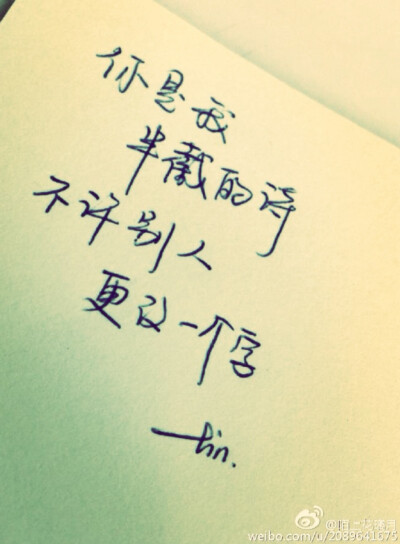 你是我
半截的诗
不许别人
更改一个字
weibo.com/u/2089641675